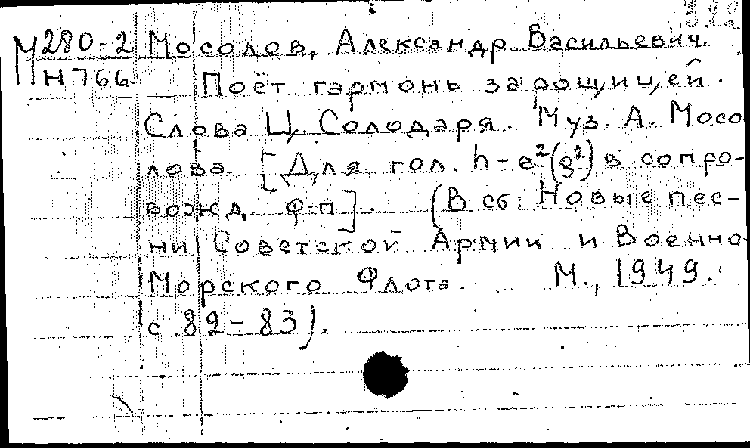 М280-2 Мосолов, Александр Васильевич.
Н766 Поёт гармонь за рощицей.
Слова Ц. Солодаря. Муз. А. Мосо
лова. [Для гол. h-e²(g²) в сопро
вожд. ф-п]. (В сб: Новые пес-
ни Советской Армии и Военно
Морского Флота. М., 1949.
с 82-83).